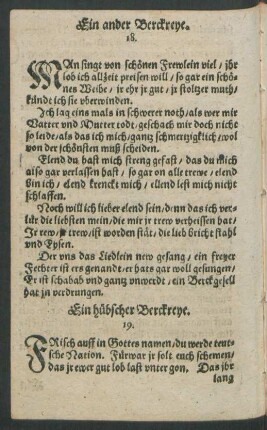 Ein ander Berckreye.
18.
MAn singt von schönen Frewlein viel / jhr
lob ich allzeit preisen will / so gar ein schö-
nes Weibe / jr ehr jr gut / jr stoltzer muth /
kündt ich sie vberwinden.
Ich lag eins mals in schwerer noth / als wer mir
Vatter vnd Mutter todt / geschach mir doch nicht
so leide / als das ich mich / gantz schmertziglich / wol
von der schönsten muß scheiden.
Elend du hast mich streng gefast / das du mich
also gar verlassen hast / so gar on alle trewe / elend
bin ich / elend krenckt mich / ellend lest mich nicht
schlaffen.
Noch will ich lieber elend sein / denn das ich ver-
lür die liebsten mein / die mir jr trew verheissen hat /
Ir trew / jr trew / ist worden stät / die lieb bricht stahl
vnd Eysen.
Der vns das Liedlein new gesang / ein freyer
Fechter ist ers genandt / er hats gar woll gesungen /
Er ist schabab vnd gantz vnwerdt / ein Berckgesell
hat jn verdrungen.
Ein hübscher Berckreye.
19.
FRisch auff in Gottes namen / du werde teut-
sche Nation. Fürwar jr solt euch schemen /
das jr ewer gut lob last vnter gon. Das jhr
lang